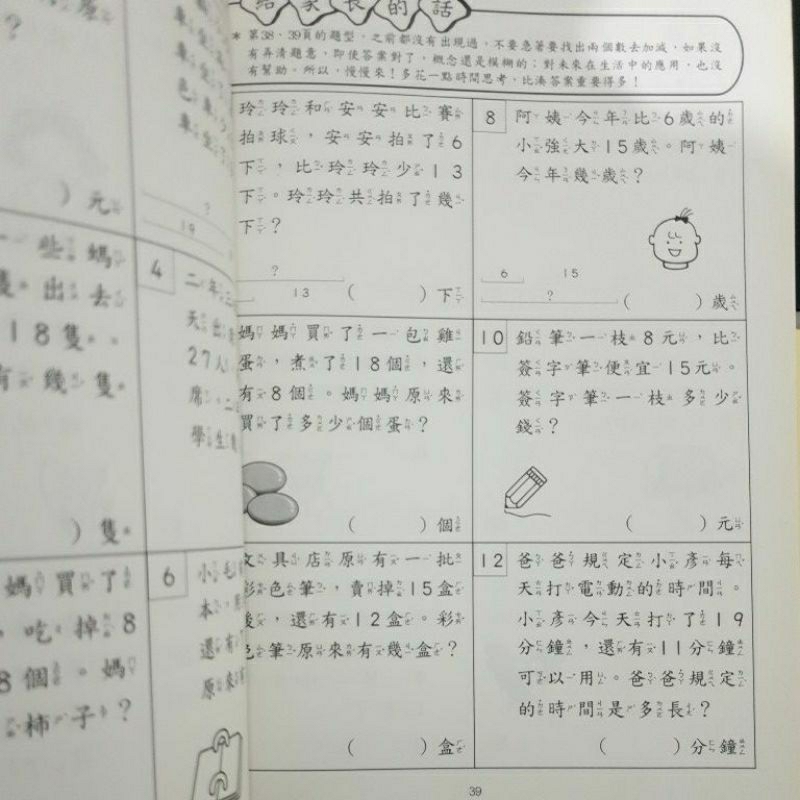 給家長的話
* 第38、39頁的題型,之前都沒有出現過,不要急著要找出兩個數去加減,如果沒
有弄清題意,即使答案對了,概念還是模糊的;對未來在生活中的應用,也沒
有幫助。所以,慢慢來!多花一點時間思考,比湊答案重要得多!
玲玲和安安比賽
拍球,安安拍了6
下,比玲玲少13
下。玲玲共拍了幾
下?
?
13
( )下
8
阿姨今年比6歲的
小強大15歲。阿姨
今年幾歲?
6 15
?
( )歲
媽媽買了一包雞
蛋,煮了18個,還
有8個。媽媽原來
買了多少個蛋?
( )個
10
鉛筆一枝8元,比
簽字筆便宜15元。
簽字筆一枝多少
錢?
( )元
文具店原有一批
彩色筆,賣掉15盒
後,還有12盒。彩
色筆原來有幾盒?
( )盒
12
爸爸規定小彥每
天打電動的時間。
小彥今天打了19
分鐘,還有11分鐘
可以用。爸爸規定
的時間是多長?
( )分鐘
39
?
)元
?
19
一些媽
隻出去
18隻。
有幾隻
)隻
4
二年三
天出
27人
席,二
學生
媽買了
,吃掉8
8個。媽
柿子?
6
小毛
本
還有
原來